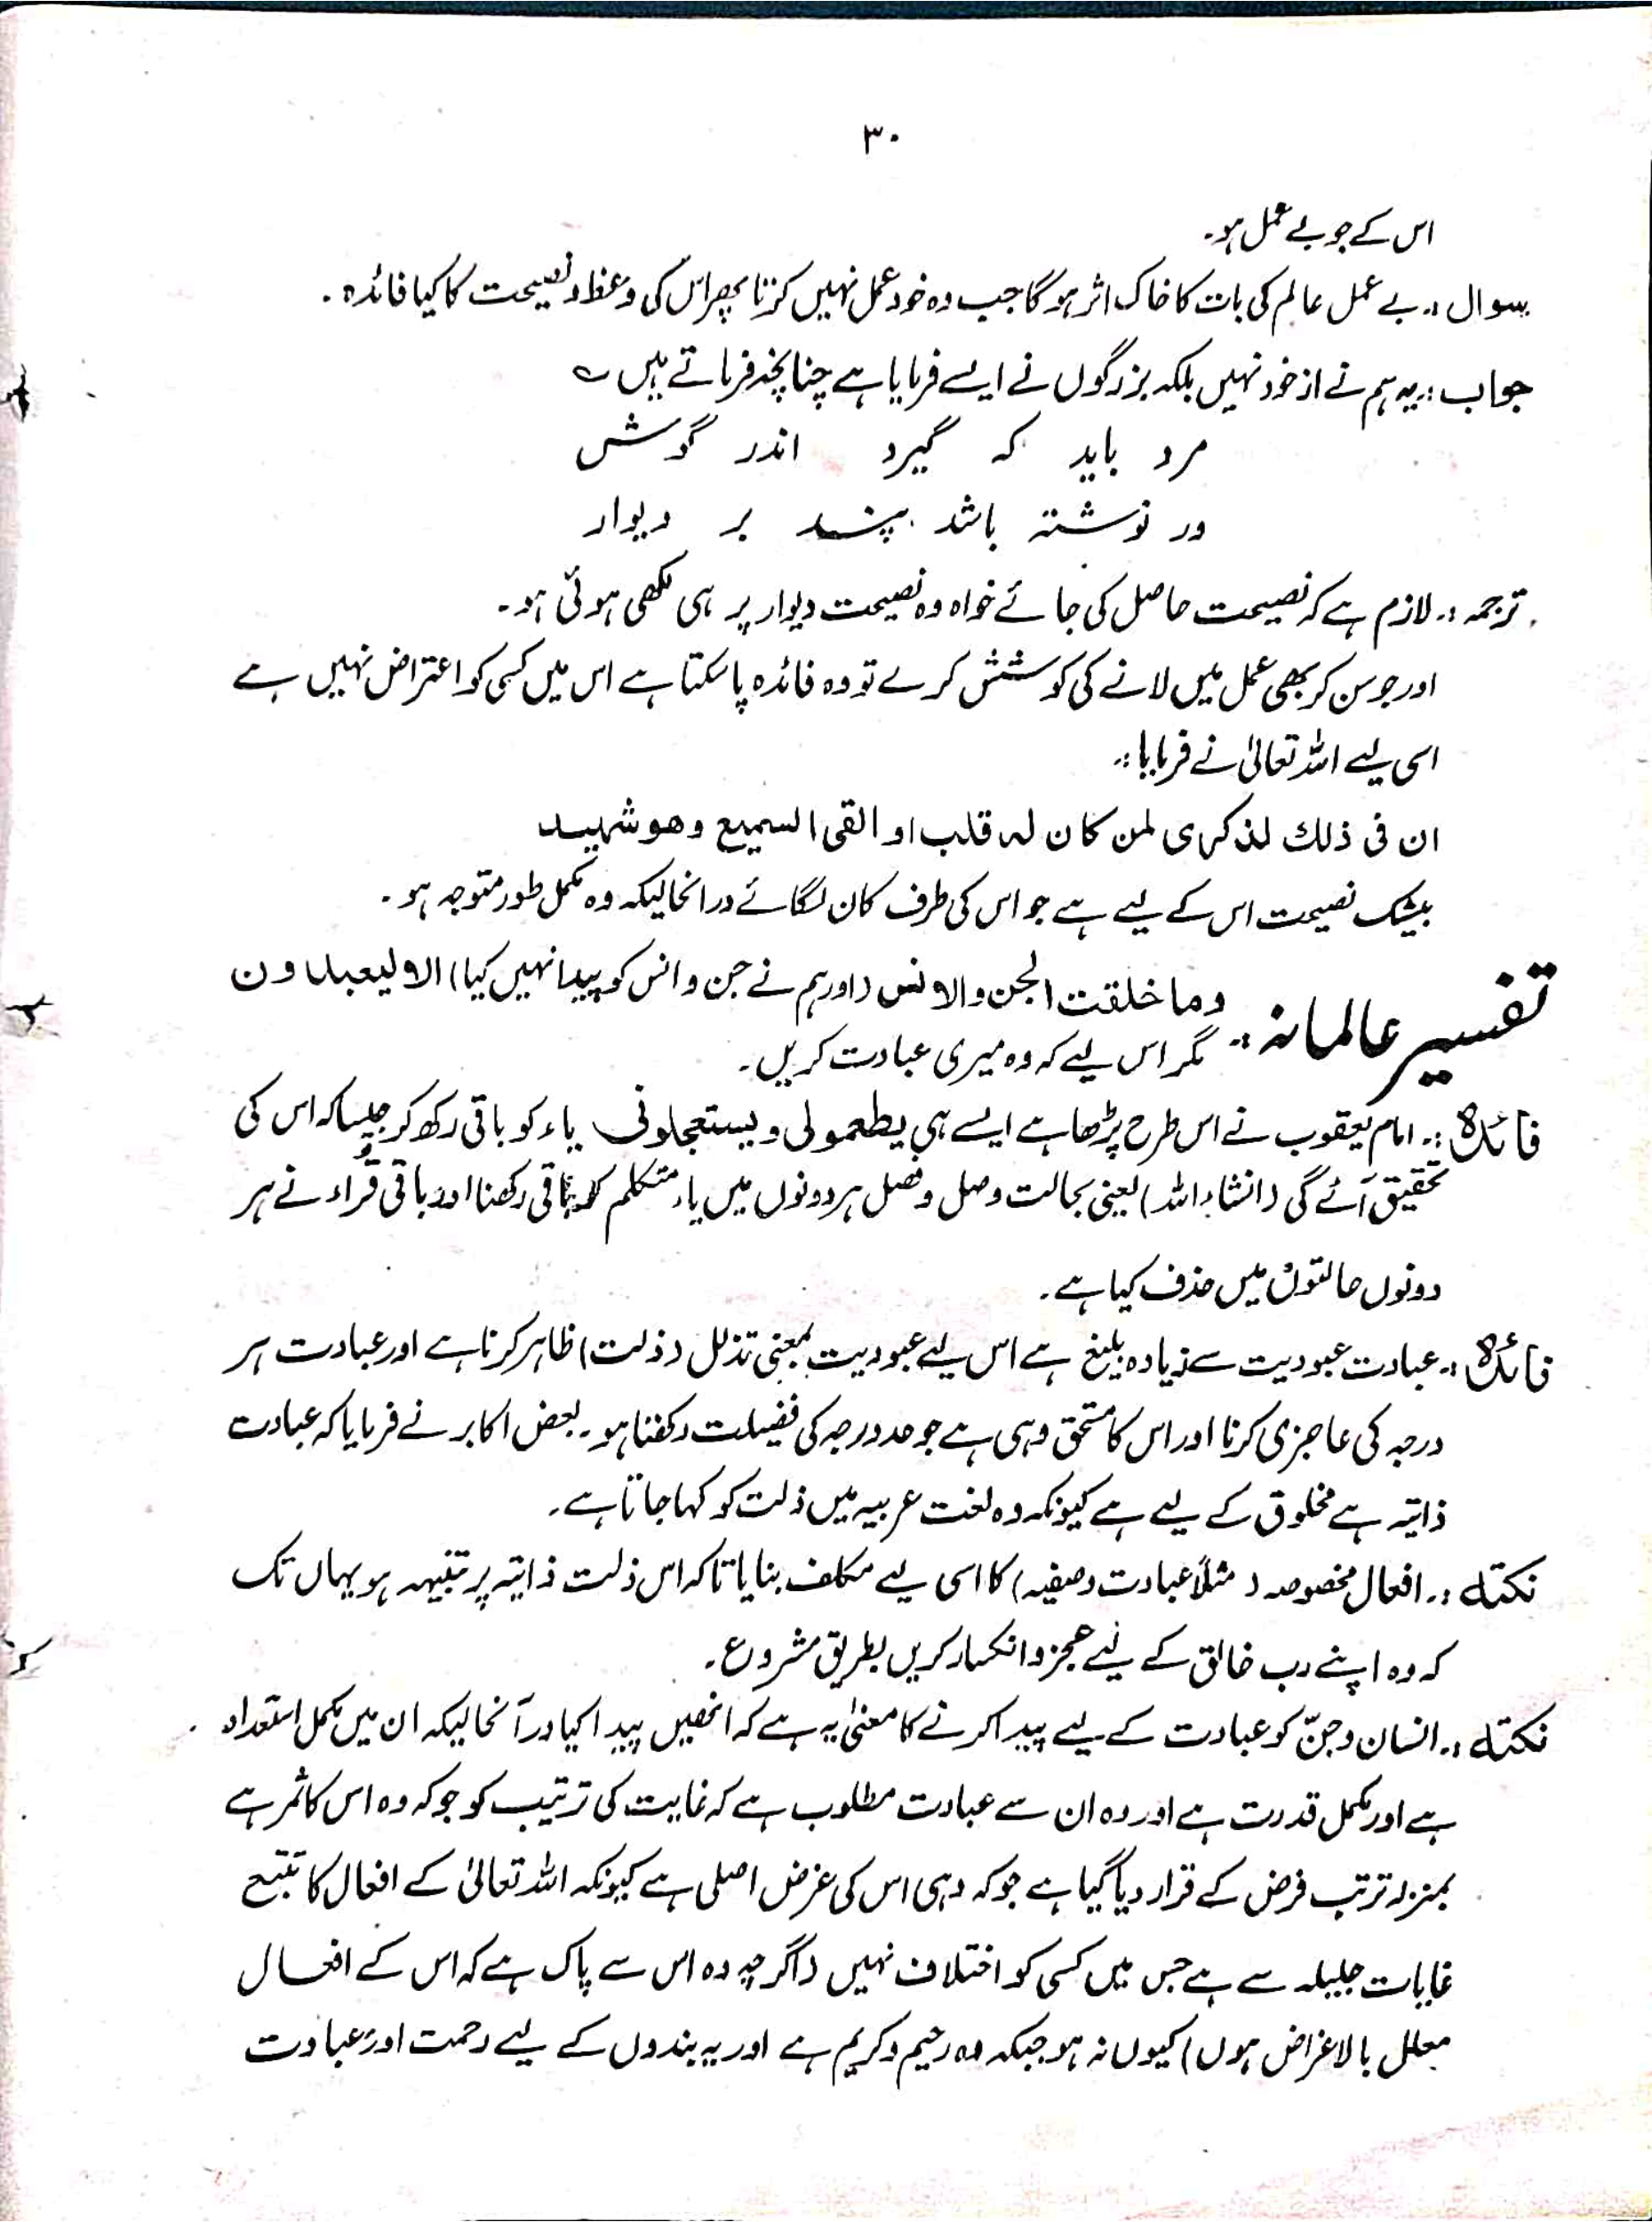 ۳۰
اس کے جو بے عمل ہو۔
سوال :۔ بے عمل عالم کی بات کا خاک اثر ہوگا جب وہ خود عمل نہیں کرتا پھر اس کی وعظ و نصیحت کا کیا فائدہ ۔
جواب :۔ یہ ہم نے از خود نہیں بلکہ بزرگوں نے ایسے فرمایا ہے چنانچہ فرماتے ہیں ؎
مرد باید کہ گیرد اندر گوش
ور نوشتہ باشد پند بر دیوار
ترجمہ :۔ لازم ہے کہ نصیحت حاصل کی جائے خواہ وہ نصیحت دیوار پر ہی لکھی ہوئی ہو۔
اور جو سن کر بھی عمل میں لانے کی کوشش کرے تو وہ فائدہ پا سکتا ہے اس میں کسی کو اعتراض نہیں ہے
اسی لیے اللہ تعالیٰ نے فرمایا :۔
ان فی ذلك لذکری لمن کان لہ قلب او القی السمیع وھو شھید
بیشک نصیحت اس کے لیے ہے جو اس کی طرف کان لگائے درانحالیکہ وہ مکمل طور متوجہ ہو ۔
تفسیر عالمانہ :۔ وما خلقت الجن والانس (اور ہم نے جن و انس کو پیدا نہیں کیا) الا لیعبدون
مگر اس لیے کہ وہ میری عبادت کریں۔
فائدہ :۔ امام یعقوب نے اس طرح پڑھا ہے ایسے ہی یطعمونی و یستعجلونی یاء کو باقی رکھ کر جیسا کہ اس کی
تحقیق آئے گی (انشاءاللہ) یعنی بحالت وصل و فصل ہر دونوں میں یاء متکلم کو باقی رکھنا اور باقی قُراء نے ہر
دونوں حالتوں میں حذف کیا ہے۔
فائدہ :۔ عبادت عبودیت سے زیادہ بلیغ ہے اس لیے عبودیت بمعنی تذلل (ذلت) ظاہر کرنا ہے اور عبادت ہر
درجہ کی عاجزی کرنا اور اس کا مستحق وہی ہے جو حد درجہ کی فضیلت رکھتا ہو۔ بعض اکابر نے فرمایا کہ عبادت
ذاتیہ ہے مخلوق کے لیے ہے کیونکہ وہ لغت عربیہ میں ذلت کو کہا جاتا ہے۔
نکتہ :۔ افعال مخصوصہ ( مثلاً عبادت وصفیہ) کا اسی لیے مکلف بنایا تاکہ اس ذلت ذاتیہ پر تنبیہہ ہو یہاں تک
کہ وہ اپنے رب خالق کے لیے عجز و انکسار کریں بطریق مشروع۔
نکتہ :۔ انسان و جنّ کو عبادت کے لیے پیدا کرنے کا معنیٰ یہ ہے کہ انھیں پیدا کیا درآنحالیکہ ان میں مکمل استعداد
ہے اور مکمل قدرت ہے اور وہ ان سے عبادت مطلوب ہے کہ غایت کی ترتیب کو جو کہ وہ اس کا ثمر ہے
بمنزلہ ترتب فرض کے قرار دیا گیا ہے جو کہ وہی اس کی غرض اصلی ہے کیونکہ اللہ تعالیٰ کے افعال کا تتبع
غایات جلیلہ سے ہے جس میں کسی کو اختلاف نہیں (اگرچہ وہ اس سے پاک ہے کہ اس کے افعال
معلل بالاغراض ہوں) کیوں نہ ہو جبکہ وہ رحیم و کریم ہے اور یہ بندوں کے لیے رحمت اور عبادت